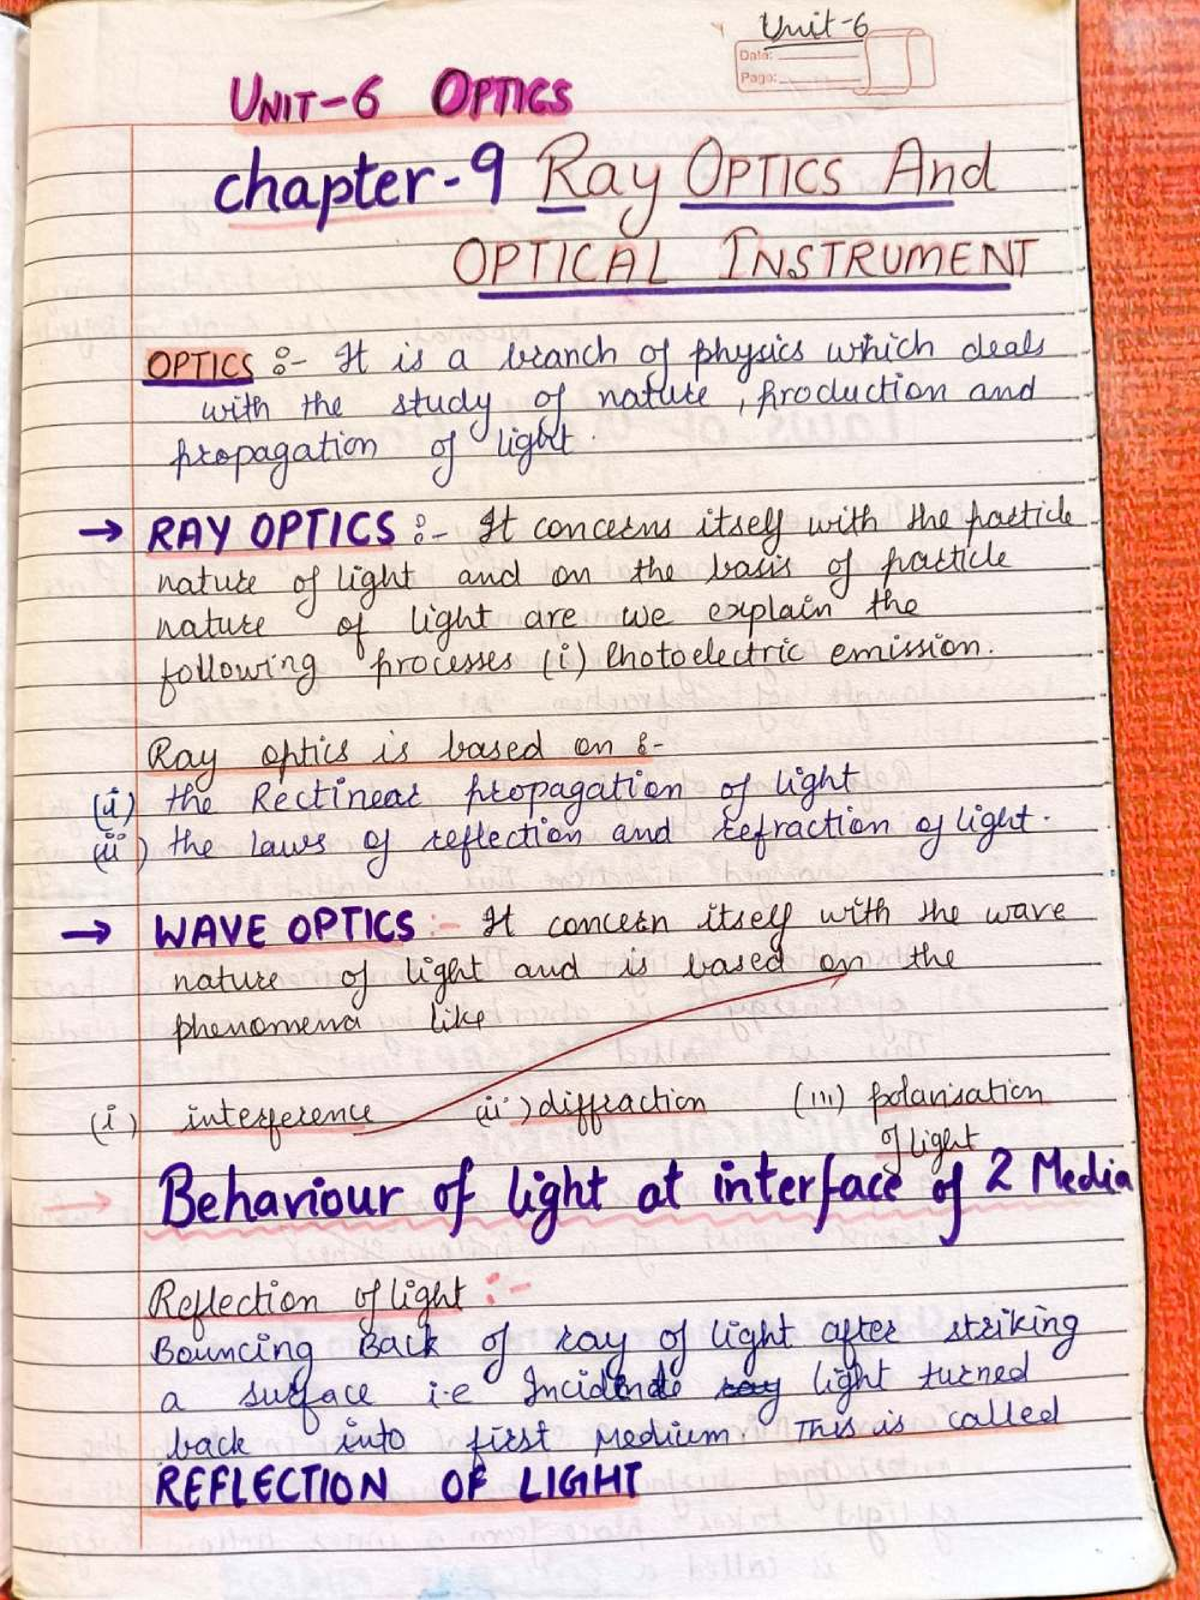 Unit-6
Date:
Page:
UNIT-6 OPTICS
chapter-9 Ray OPTICS And
OPTICAL INSTRUMENT
OPTICS :- It is a branch of physics which deals
with the study of nature, production and
propagation of light.
→ RAY OPTICS :- It concerns itself with the particle
nature of light and on the basis of particle
nature of light are we explain the
following processes (i) Photoelectric emission.
Ray optics is based on :-
(i) the Rectinear propagation of light
(ii) the laws of reflection and refraction of light.
→ WAVE OPTICS :- It concern itself with the wave
nature of light and is based on the
phenomena like
(i) interference (ii) diffraction (iii) polarisation
of light
→ Behaviour of light at interface of 2 Media
Reflection of light :-
Bouncing Back of ray of light after striking
a surface i.e light turned
back into first Medium. This is called
REFLECTION OF LIGHT